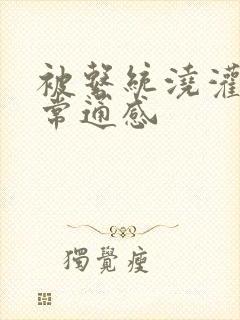 被系統澆灌
常通感
獨覺瘦